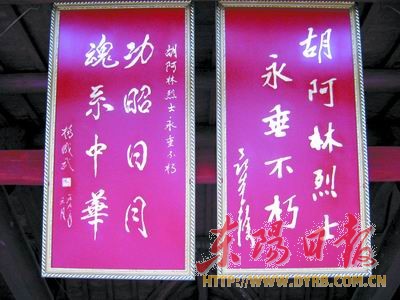 胡阿林烈士
永垂不朽
胡阿林烈士永垂不朽
功昭日月
魂系中華
杨成武
东陽日报
WWW.DYRB.COM.CN